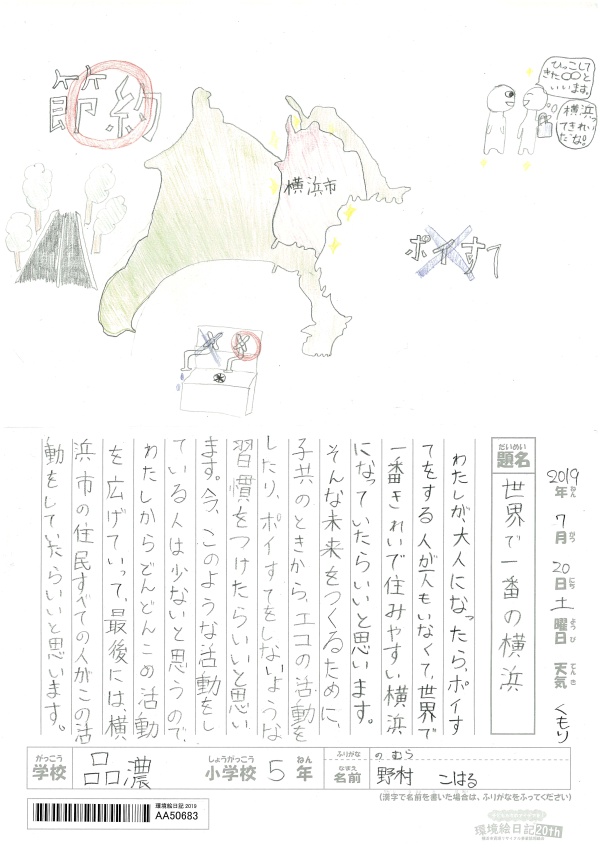 節約
横浜市
ひっこして
きた○○と
いいます。
横浜っ
てきれい
だな。
ポイすて
2019年 7月 20日 土曜日 天気 くもり
ねん がつ にち ようび てんき
だいめい
題名 世界で一番の横浜
わたしが、大人になったら、ポイす
てをする人が一人もいなくて、世界で
一番きれいで住みやすい横浜
になっていたらいいと思います。
そんな未来をつくるために、
子共のときから、エコの活動を
したり、ポイすてをしないような
習慣をつけたらいいと思い
ます。今、このような活動をし
ている人は少ないと思うので、
わたしからどんどんこの活動
を広げていって、最後には、横
浜市の住民すべての人がこの活
動をしていたらいいと思います。
がっこう しょうがっこう ねん ふりがな のむら
学校 品濃 小学校 5年 なまえ 名前 野村 こはる
(漢字で名前を書いた場合は、ふりがなをふってください)
環境絵日記2019
AA50683
環境絵日記20th